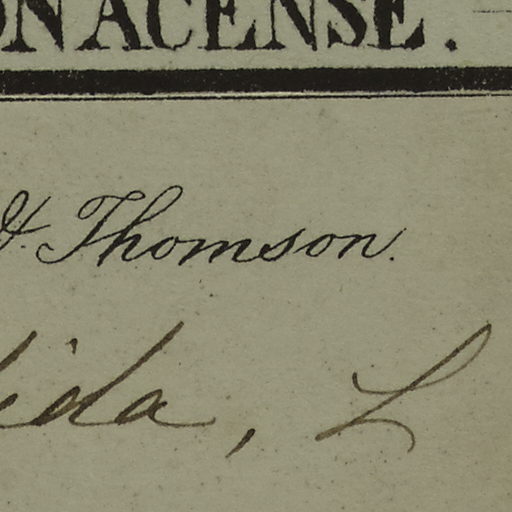 ON ACENSE.
& Thomson.
ida, L